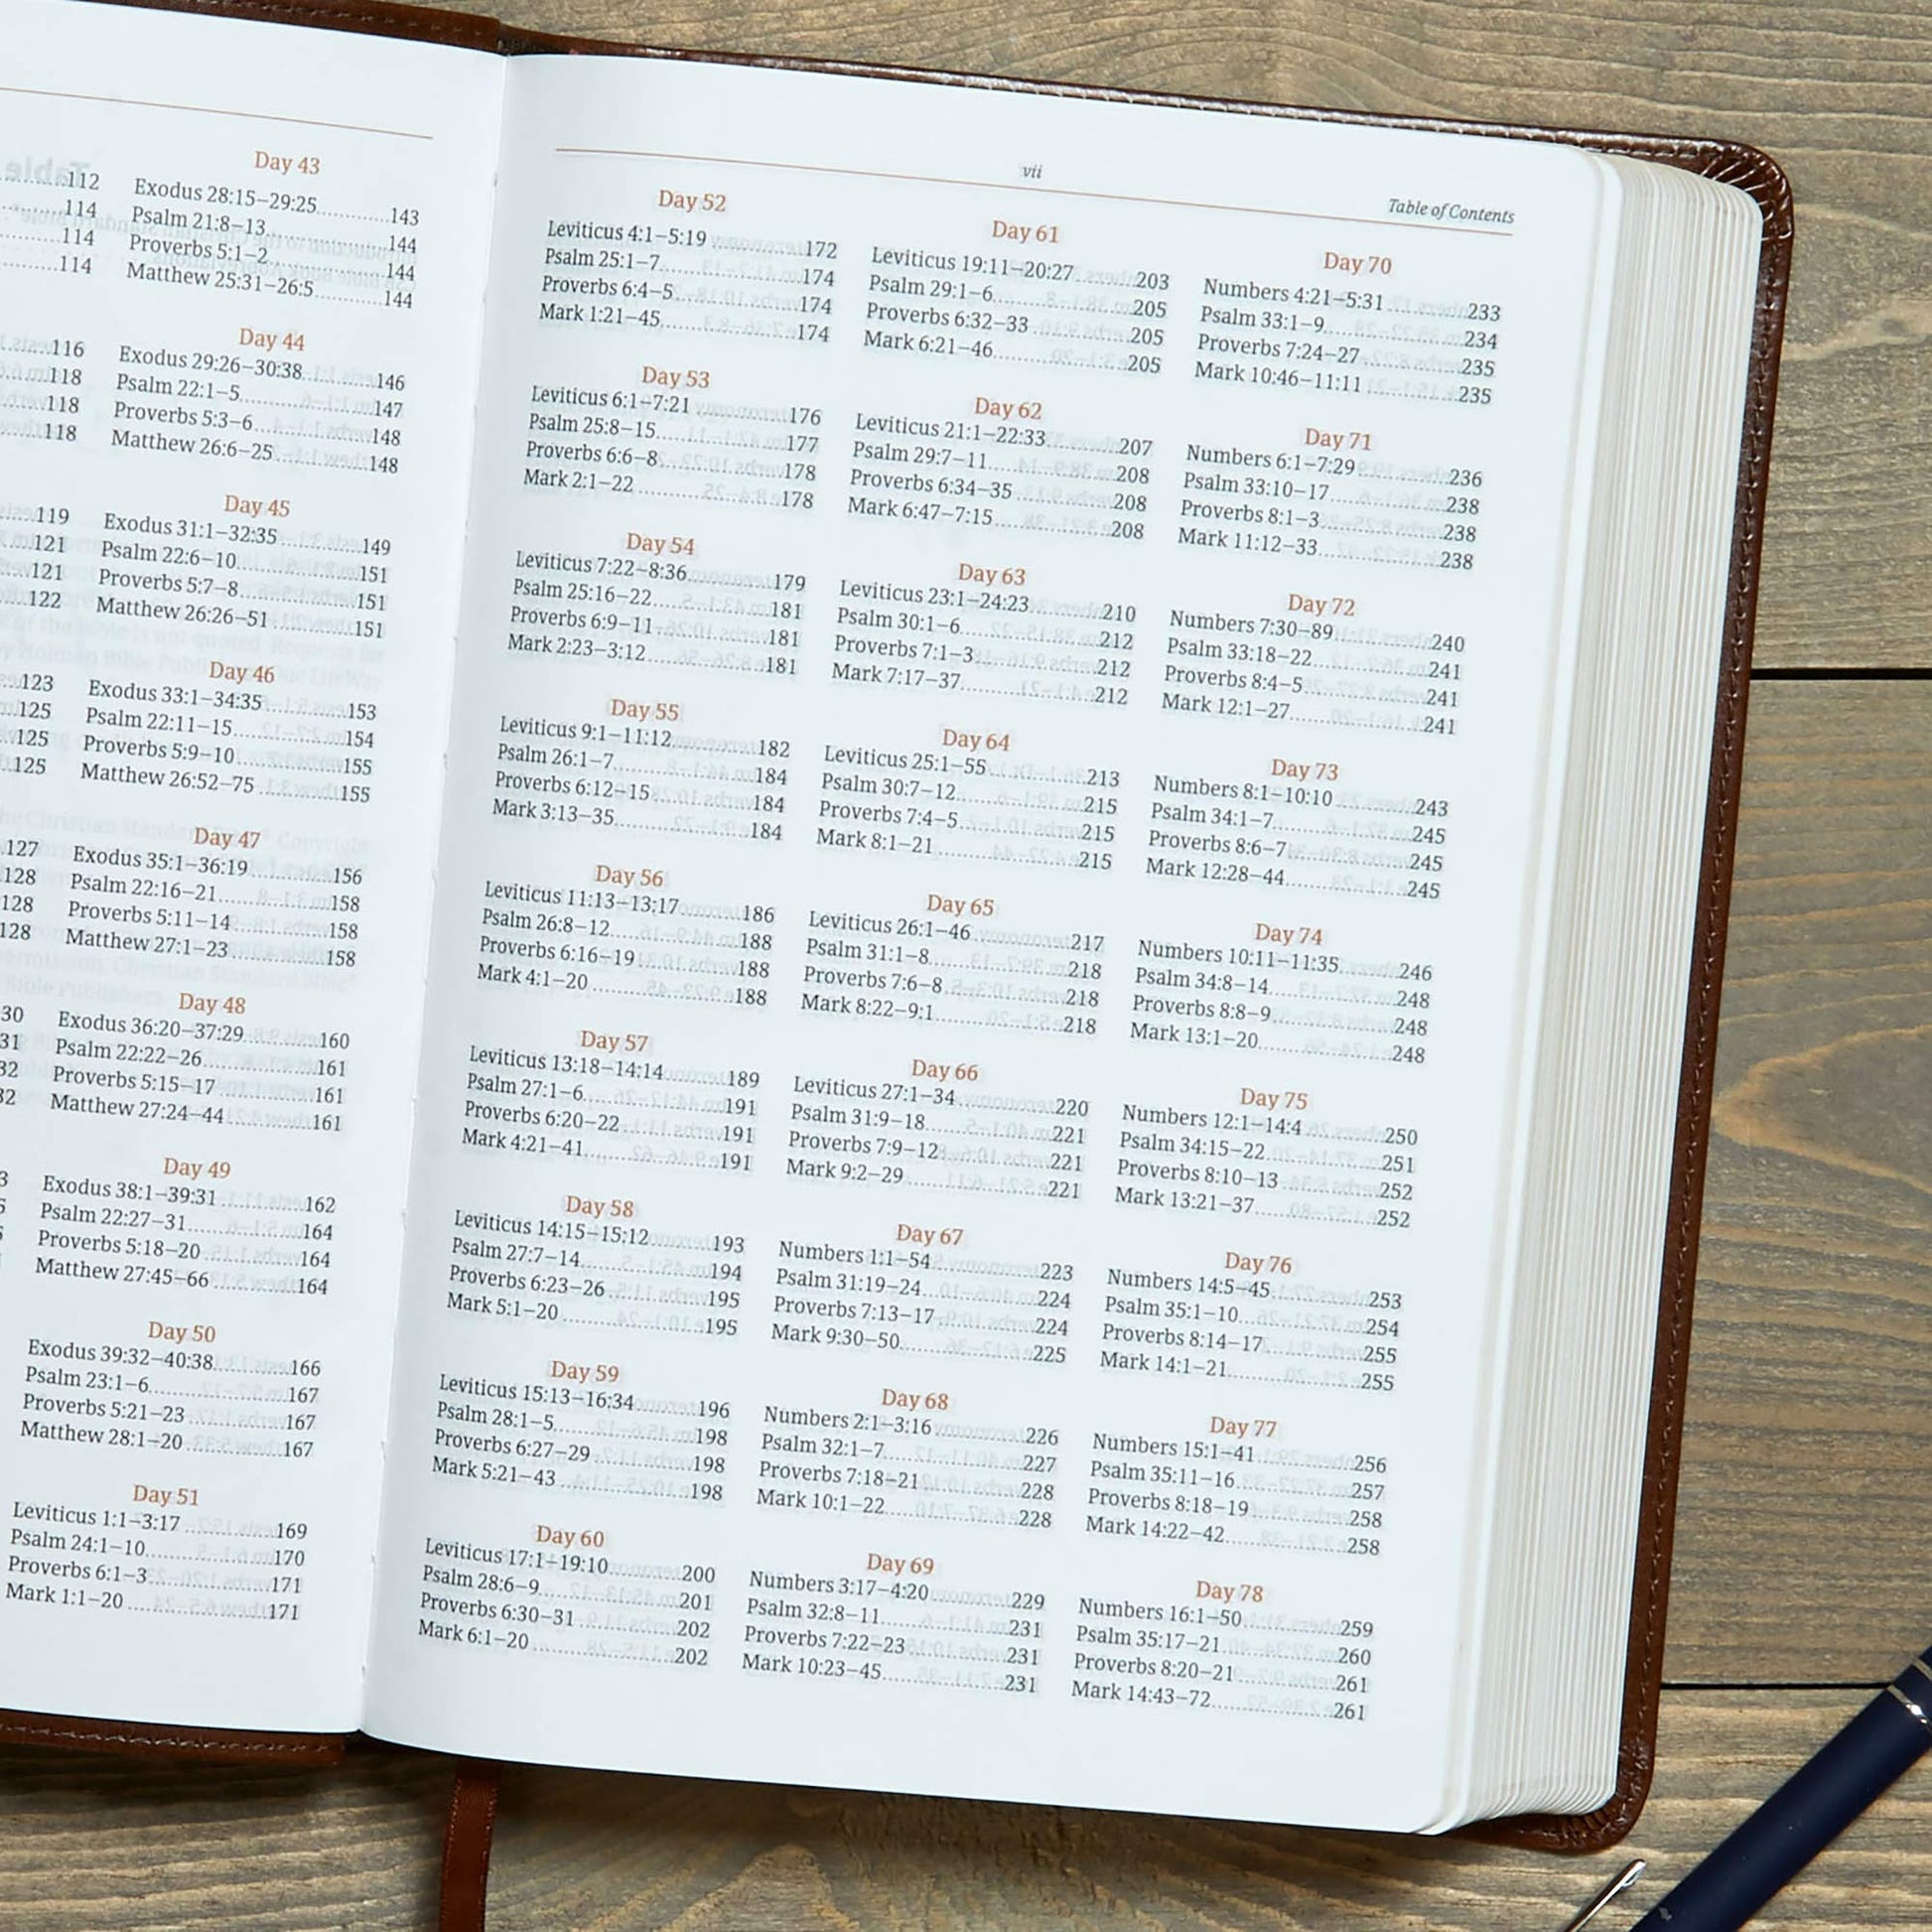 112
114
114
114
116
118
118
118
119
121
121
122
123
125
125
125
127
128
128
128
Day 43
Exodus 28:15–29:25............143
Psalm 21:8–13....................144
Proverbs 5:1–2....................144
Matthew 25:31–26:5............144
Day 44
Exodus 29:26–30:38............146
Psalm 22:1–5......................147
Proverbs 5:3–6....................148
Matthew 26:6–25................148
Day 45
Exodus 31:1–32:35..............149
Psalm 22:6–10....................151
Proverbs 5:7–8....................151
Matthew 26:26–51..............151
Day 46
Exodus 33:1–34:35..............153
Psalm 22:11–15..................154
Proverbs 5:9–10..................155
Matthew 26:52–75..............155
Day 47
Exodus 35:1–36:19..............156
Psalm 22:16–21..................158
Proverbs 5:11–14................158
Matthew 27:1–23................158
Day 48
Exodus 36:20–37:29............160
Psalm 22:22–26..................161
Proverbs 5:15–17................161
Matthew 27:24–44..............161
Day 49
Exodus 38:1–39:31..............162
Psalm 22:27–31..................164
Proverbs 5:18–20................164
Matthew 27:45–66..............164
Day 50
Exodus 39:32–40:38............166
Psalm 23:1–6......................167
Proverbs 5:21–23................167
Matthew 28:1–20................167
Day 51
Leviticus 1:1–3:17..............169
Psalm 24:1–10....................170
Proverbs 6:1–3....................171
Mark 1:1–20......................171
vii
Table of Contents
Day 52
Leviticus 4:1–5:19..............172
Psalm 25:1–7......................174
Proverbs 6:4–5....................174
Mark 1:21–45....................174
Day 53
Leviticus 6:1–7:21..............176
Psalm 25:8–15....................177
Proverbs 6:6–8....................178
Mark 2:1–22......................178
Day 54
Leviticus 7:22–8:36............179
Psalm 25:16–22..................181
Proverbs 6:9–11..................181
Mark 2:23–3:12..................181
Day 55
Leviticus 9:1–11:12............182
Psalm 26:1–7......................184
Proverbs 6:12–15................184
Mark 3:13–35....................184
Day 56
Leviticus 11:13–13:17..........186
Psalm 26:8–12....................188
Proverbs 6:16–19................188
Mark 4:1–20......................188
Day 57
Leviticus 13:18–14:14..........189
Psalm 27:1–6......................191
Proverbs 6:20–22................191
Mark 4:21–41....................191
Day 58
Leviticus 14:15–15:12..........193
Psalm 27:7–14....................194
Proverbs 6:23–26................195
Mark 5:1–20......................195
Day 59
Leviticus 15:13–16:34..........196
Psalm 28:1–5......................198
Proverbs 6:27–29................198
Mark 5:21–43....................198
Day 60
Leviticus 17:1–19:10............200
Psalm 28:6–9......................201
Proverbs 6:30–31................202
Mark 6:1–20......................202
Day 61
Leviticus 19:11–20:27..........203
Psalm 29:1–6......................205
Proverbs 6:32–33................205
Mark 6:21–46....................205
Day 62
Leviticus 21:1–22:33............207
Psalm 29:7–11....................208
Proverbs 6:34–35................208
Mark 6:47–7:15..................208
Day 63
Leviticus 23:1–24:23............210
Psalm 30:1–6......................212
Proverbs 7:1–3....................212
Mark 7:17–37....................212
Day 64
Leviticus 25:1–55................213
Psalm 30:7–12....................215
Proverbs 7:4–5....................215
Mark 8:1–21......................215
Day 65
Leviticus 26:1–46................217
Psalm 31:1–8......................218
Proverbs 7:6–8....................218
Mark 8:22–9:1....................218
Day 66
Leviticus 27:1–34................220
Psalm 31:9–18....................221
Proverbs 7:9–12..................221
Mark 9:2–29......................221
Day 67
Numbers 1:1–54..................223
Psalm 31:19–24..................224
Proverbs 7:13–17................224
Mark 9:30–50....................225
Day 68
Numbers 2:1–3:16..............226
Psalm 32:1–7......................227
Proverbs 7:18–21................228
Mark 10:1–22....................228
Day 69
Numbers 3:17–4:20............229
Psalm 32:8–11....................231
Proverbs 7:22–23................231
Mark 10:23–45..................231
Day 70
Numbers 4:21–5:31............233
Psalm 33:1–9......................234
Proverbs 7:24–27................235
Mark 10:46–11:11..............235
Day 71
Numbers 6:1–7:29..............236
Psalm 33:10–17..................238
Proverbs 8:1–3....................238
Mark 11:12–33..................238
Day 72
Numbers 7:30–89................240
Psalm 33:18–22..................241
Proverbs 8:4–5....................241
Mark 12:1–27....................241
Day 73
Numbers 8:1–10:10............243
Psalm 34:1–7......................245
Proverbs 8:6–7....................245
Mark 12:28–44..................245
Day 74
Numbers 10:11–11:35..........246
Psalm 34:8–14....................248
Proverbs 8:8–9....................248
Mark 13:1–20....................248
Day 75
Numbers 12:1–14:4............250
Psalm 34:15–22..................251
Proverbs 8:10–13................252
Mark 13:21–37..................252
Day 76
Numbers 14:5–45................253
Psalm 35:1–10....................254
Proverbs 8:14–17................255
Mark 14:1–21....................255
Day 77
Numbers 15:1–41................256
Psalm 35:11–16..................257
Proverbs 8:18–19................258
Mark 14:22–42..................258
Day 78
Numbers 16:1–50................259
Psalm 35:17–21..................260
Proverbs 8:20–21................261
Mark 14:43–72..................261